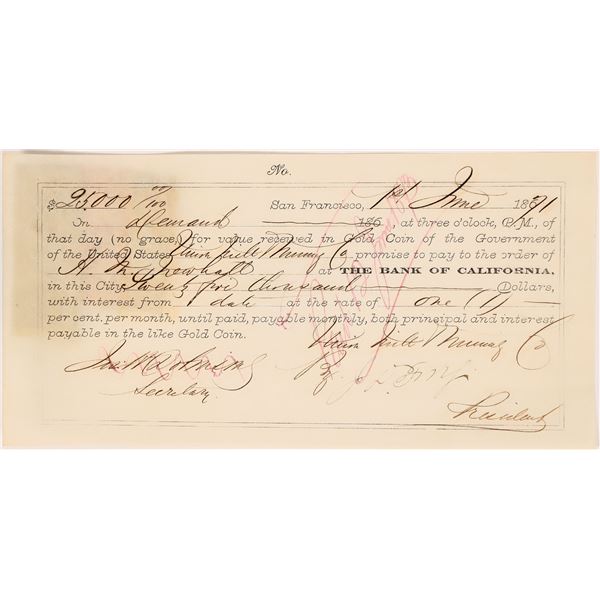 No.
$25,000 00/100 San Francisco, 1st June 1871
On Demand 186 , at three o'clock, P.M., of
that day (no grace,) for value received in Gold Coin of the Government
of the United States, Union Mill & Mining Co promise to pay to the order of
H. M. Newhall at THE BANK OF CALIFORNIA,
in this City, Twenty five thousand Dollars,
with interest from date at the rate of one (1)
per cent. per month, until paid, payable monthly, both principal and interest
payable in the like Gold Coin.
Union Mill & Mining Co
By
Secretary.
President